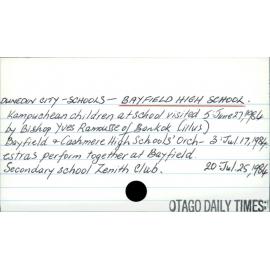 DUNEDIN CITY - SCHOOLS - BAYFIELD HIGH SCHOOL.
Kampuchean children at school visited 5 June 27, 1984
by Bishop Yves Ramousse of Bankok (illus)
Bayfield & Cashmere High Schools' Orch- 3 Jul 17, 1984
estras perform together at Bayfield.
Secondary school Zenith Club. 20 Jul 25, 1984
OTAGO DAILY TIMES: